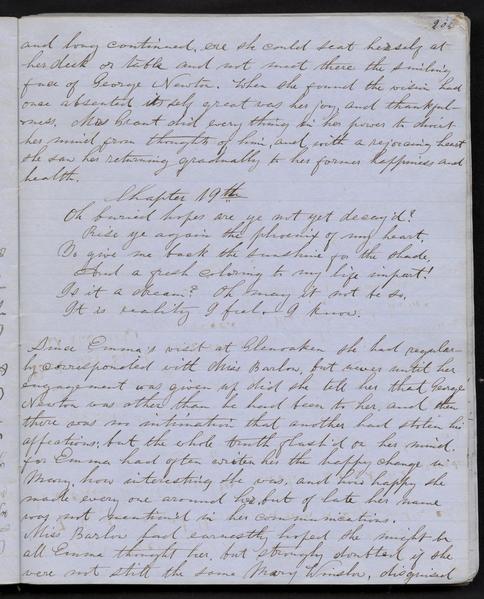 and long continued, ere she could seat herself at
her desk or table and not meet there the smiling
face of George Newton. When she found the vision had
once absented itself great was her joy, and thankful-
ness. Mrs Grant did every thing in her power to divert
her mind from thoughts of him and, with a rejoicing heart
she saw her returning gradually to her former happiness and
health.
Chapter 19th
Oh buried hopes are ye not yet decay'd?
Rise ye again the phoenix of my heart,
To give me back the sunshine for the shade,
And a fresh coloring to my life impart!
Is it a dream? Oh may it not be so,
It is reality I feel. I know.
Since Emma's visit at Glenoaken she had regular-
ly corresponded with Miss Barlow, but never until her
engagement was given up did she tell her that George
Newton was other than he had been to her, and then
there was no intimation that another had stolen his
affections; but the whole truth flash'd on her mind.
for Emma had often writen her the happy change in
Mary, how interesting she was, and how happy she
made every one around her, but of late her name
was not mention'd in her communications.
Miss Barlow had earnestly hoped she might be
all Emma thought her, but strongly doubted if she
were not still the same Mary Winslow, disguised